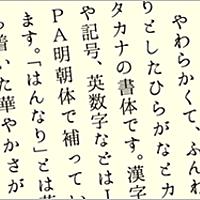 やわらかくて、ふんわ
りとしたひらがなとカ
タカナの書体です。漢字
や記号、英数字などはI
PA明朝体で補ってい
ます。「はんなり」とは
ち着いた華やかさが